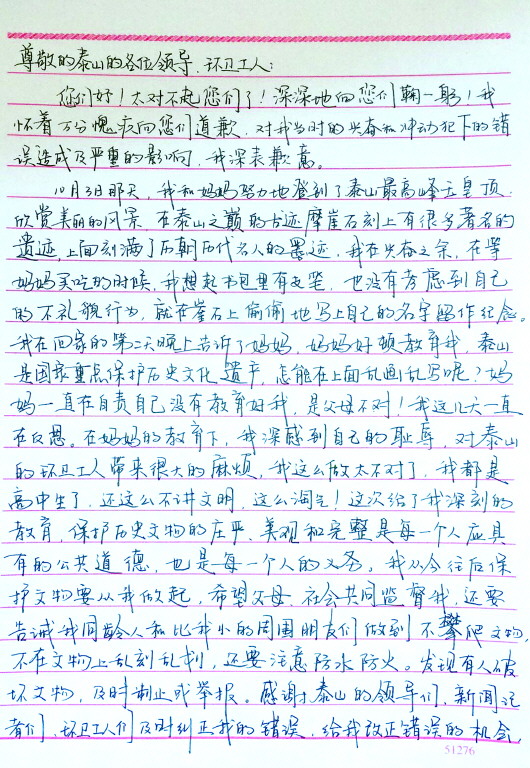 尊敬的泰山的各位领导、环卫工人：
您们好！太对不起您们了！深深地向您们鞠一躬！我
怀着万分愧疚向您们道歉，对我当时的兴奋和冲动犯下的错
误造成及严重的影响，我深表歉意。
10月3日那天，我和妈妈努力地登到了泰山最高峰玉皇顶，
欣赏美丽的风景，在泰山之巅的古迹摩崖石刻上有很多著名的
遗迹，上面刻满了历朝历代名人的墨迹，我在兴奋之余，在等
妈妈买吃的时候，我想起书包里有支笔，也没有考虑到自己
的不礼貌行为，就在崖石上偷偷地写上自己的名字留作纪念。
我在回家的第二天晚上告诉了妈妈，妈妈好顿教育我，泰山
是国家重点保护历史文化遗产，怎能在上面乱画乱写呢？妈
妈一直在自责自己没有教育好我，是父母不对！我这几天一直
在反思。在妈妈的教育下，我深感到自己的耻辱，对泰山
的环卫工人带来很大的麻烦，我这么做太不对了，我都是
高中生了，还这么不讲文明，这么淘气！这次给了我深刻的
教育，保护历史文物的庄严、美观和完整是每一个人应具
有的公共道德，也是每一个人的义务。我从今往后保
护文物要从我做起，希望父母、社会共同监督我，还要
告诫我同龄人和比我小的周围朋友们做到不攀爬文物，
不在文物上乱刻乱划，还要注意防水防火。发现有人破
坏文物，及时制止或举报。感谢泰山的领导们，新闻记
者们，环卫工人们及时纠正我的错误，给我改正错误的机会
51276